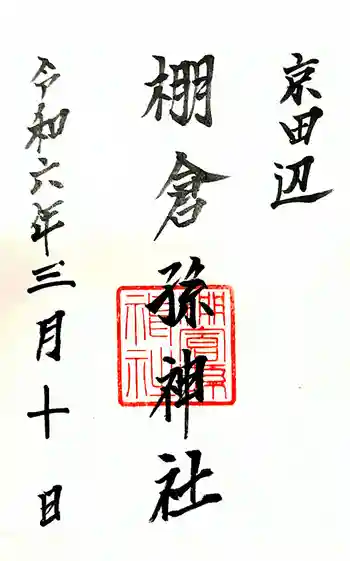 京田辺
棚倉孫神社
棚倉孫神社
令和六年三月十日